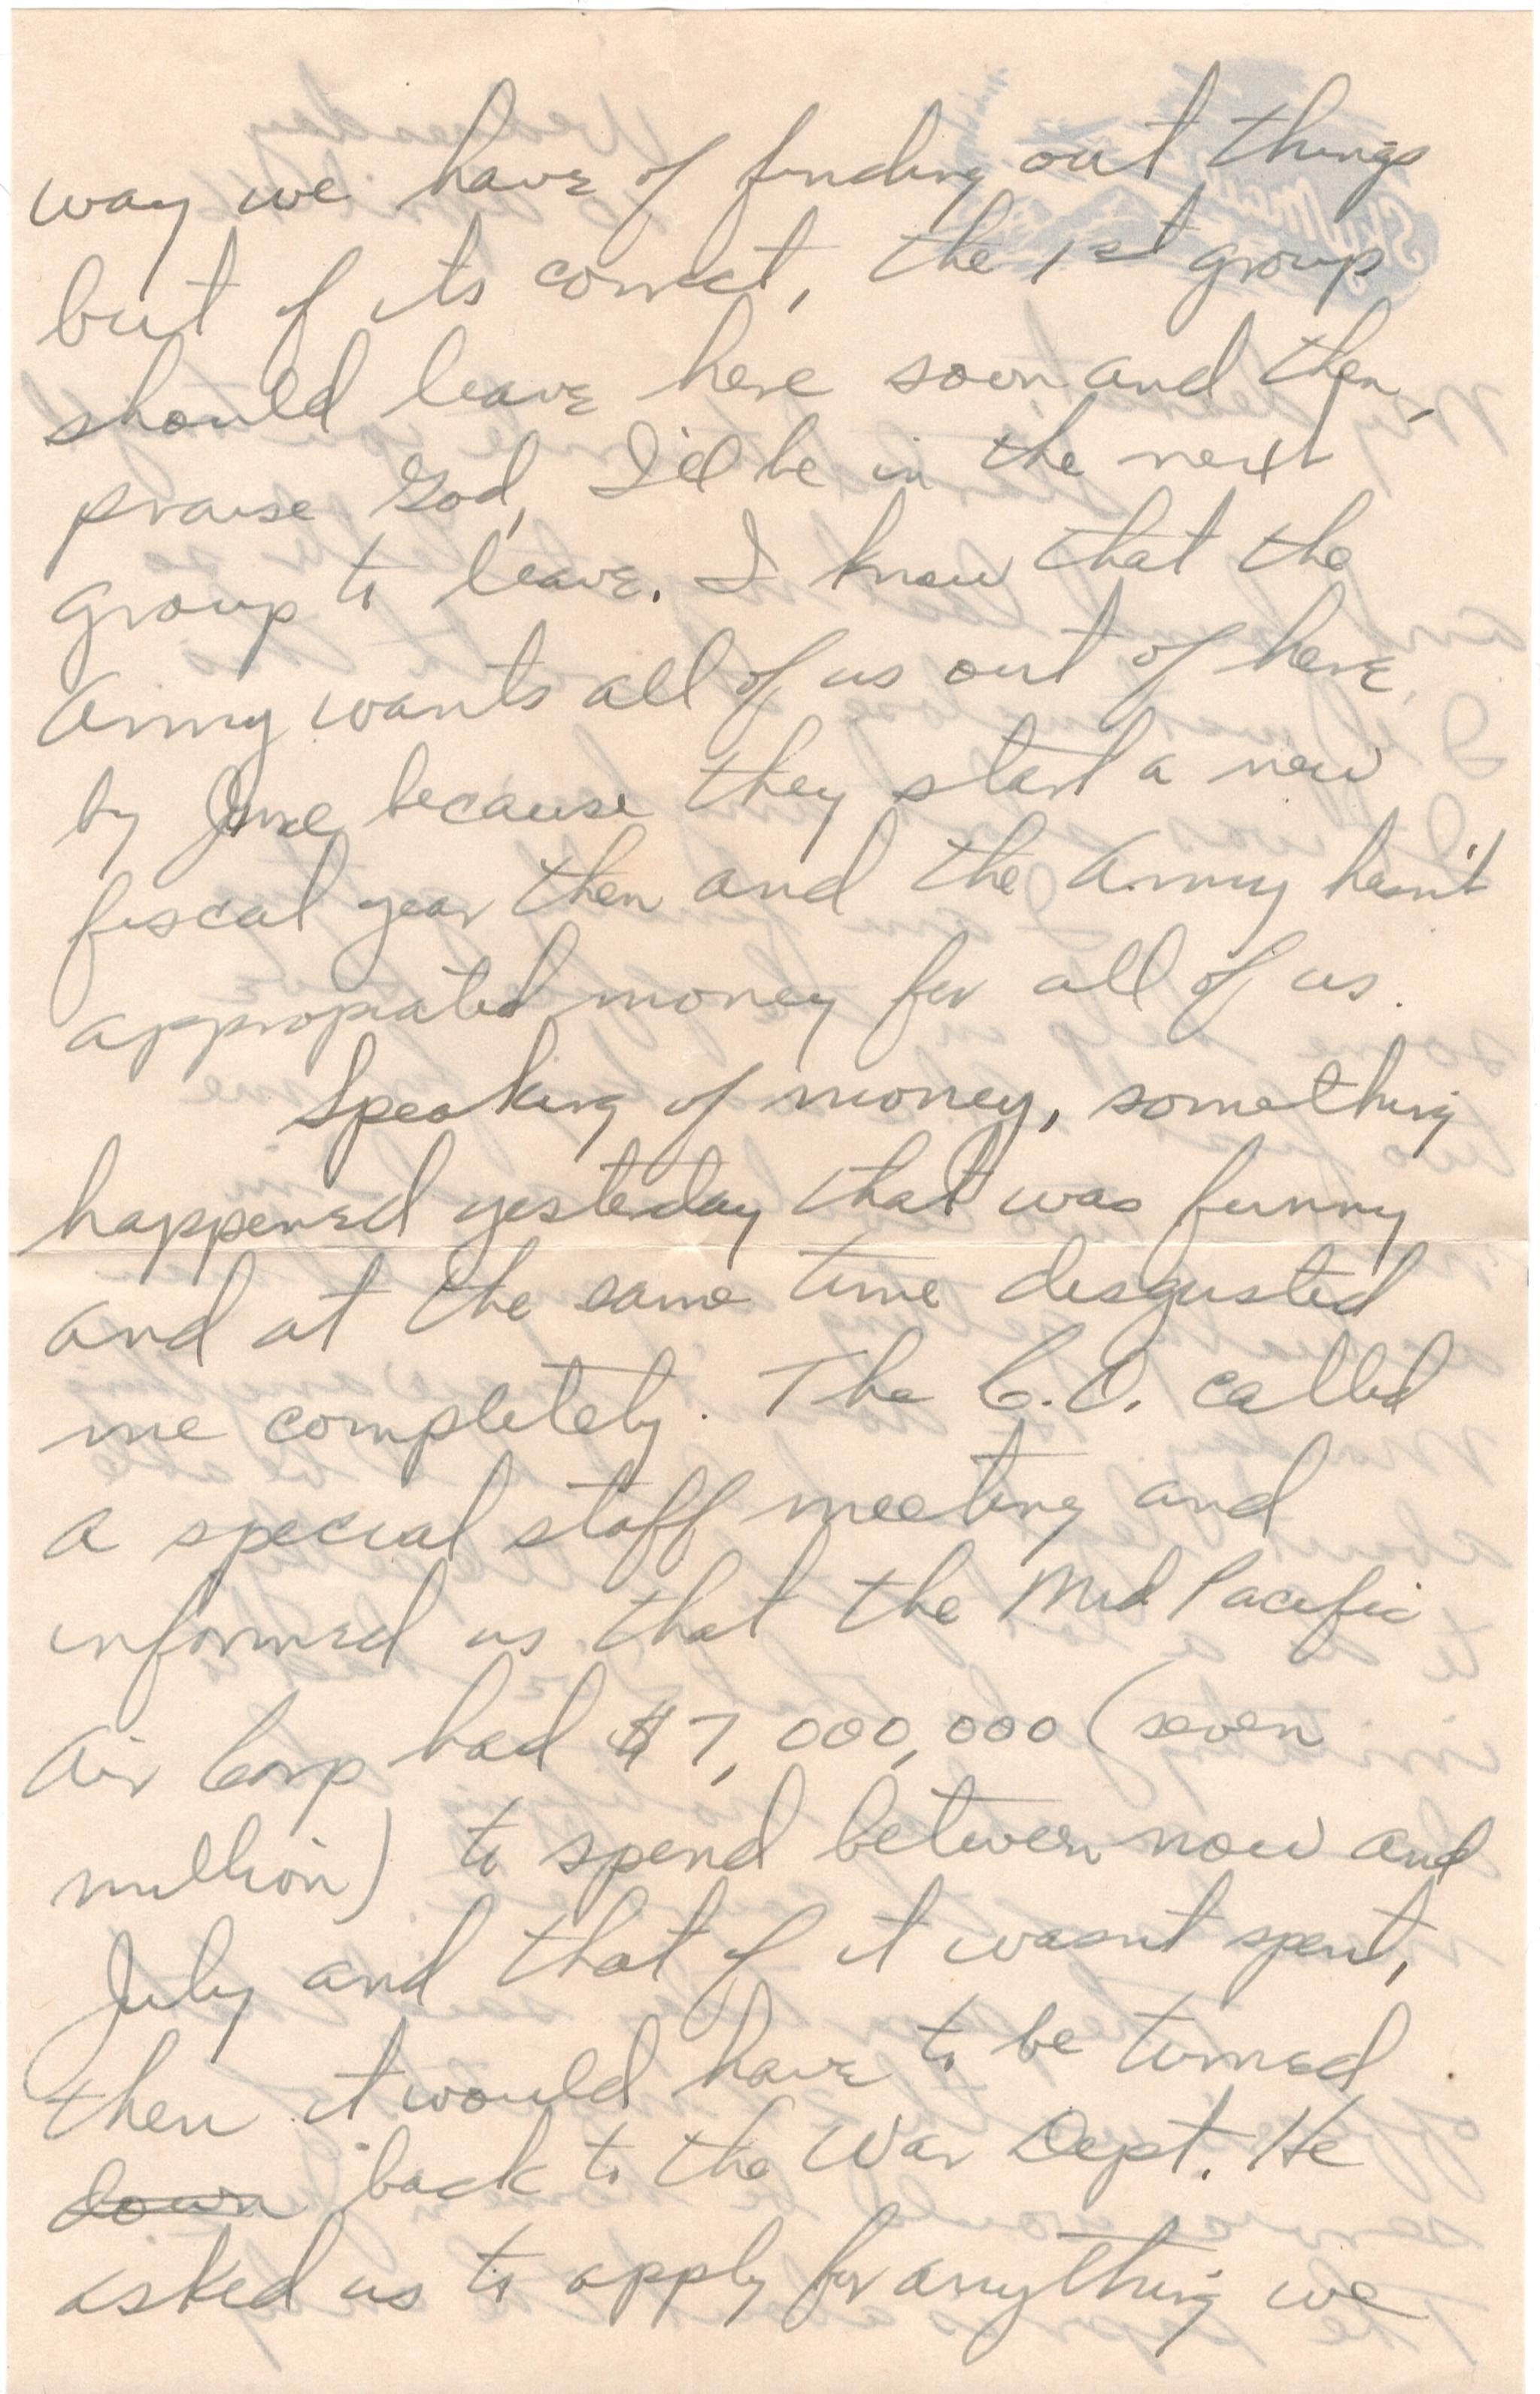 way we have of finding out things
but if its correct, the 1st group
should leave here soon and then,
praise God, I'll be in the next
group to leave. I know that the
Army wants all of us out of here
by June because they start a new
fiscal year then and the Army hasn't
appropiated money for all of us.
Speaking of money, something
happened yesterday that was funny
and at the same time disgusted
me completely. The C.O. called
a special staff meeting and
informed us that the Mid Pacific
Air Corp had $7,000,000 (seven
million) to spend between now and
July and that if it wasnt spent,
then it would have to be turned
down back to the War Dept. He
asked us to apply for anything we